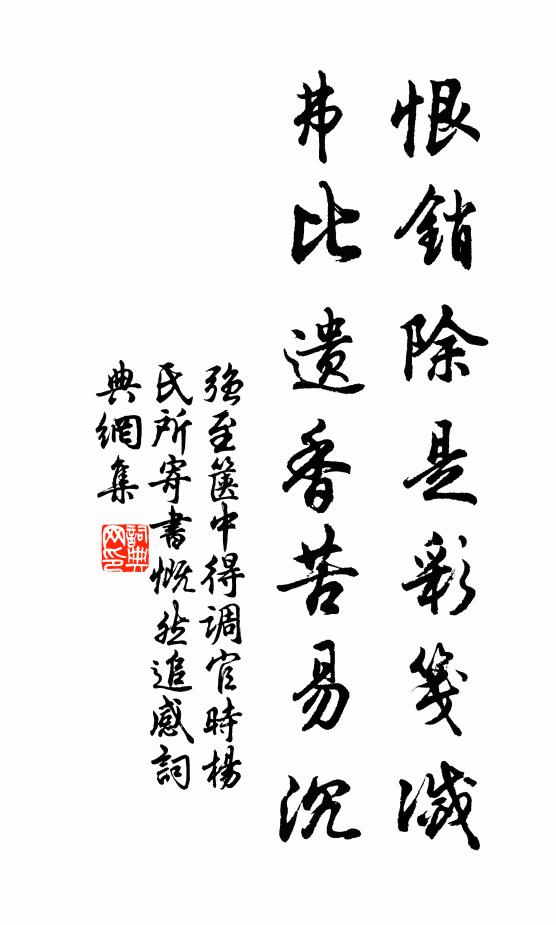 恨銷除是彩箋滅
弗比遺香苦易沉
强至篋中得調官時楊
氏所寄書慨然追感詞
典網集
詞典網印